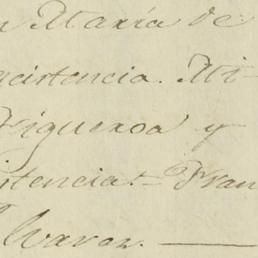 María de
acistencia. Mi-
Figueroa y
istencia.= Fran
Alvarez.